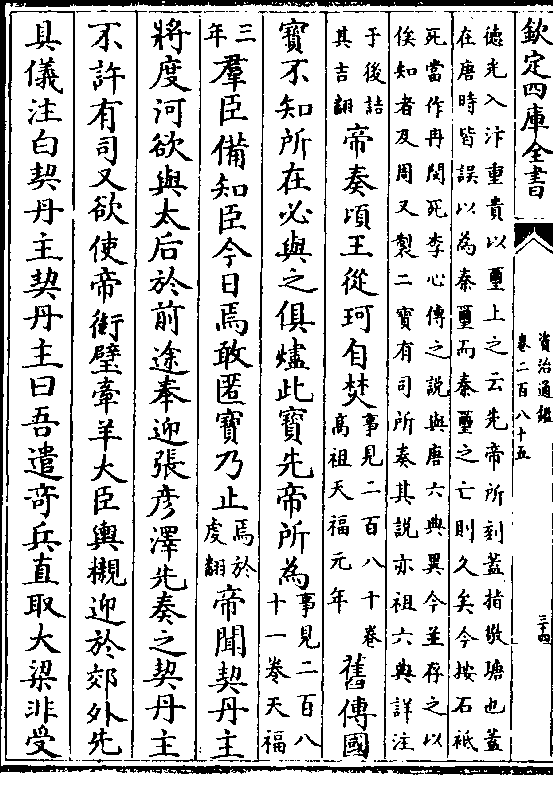 欽定四庫全書
資治通鑑
卷二百八十五
三十四
德光入汴重貴以璽上之云先帝所刻蓋指敬瑭也蓋
在唐時皆誤以為秦璽而秦璽之亡則久矣今按石祗
死當作冉閔死李心傳之說與唐六典異今並存之以
俟知者及周又製二寶有司所奏其說亦祖六典詳注
于後詰其吉翻帝奏頃王從珂自焚事見二百八十卷高祖天福元年舊傳國
寶不知所在必與之俱燼此寶先帝所為事見二百八十一卷天福
三年羣臣備知臣今日焉敢匿寶乃止焉於虔翻帝聞契丹主
將度河欲與太后於前途奉迎張彥澤先奏之契丹主
不許有司又欲使帝銜璧牽羊大臣輿櫬迎於郊外先
具儀注白契丹主契丹主曰吾遣奇兵直取大梁非受